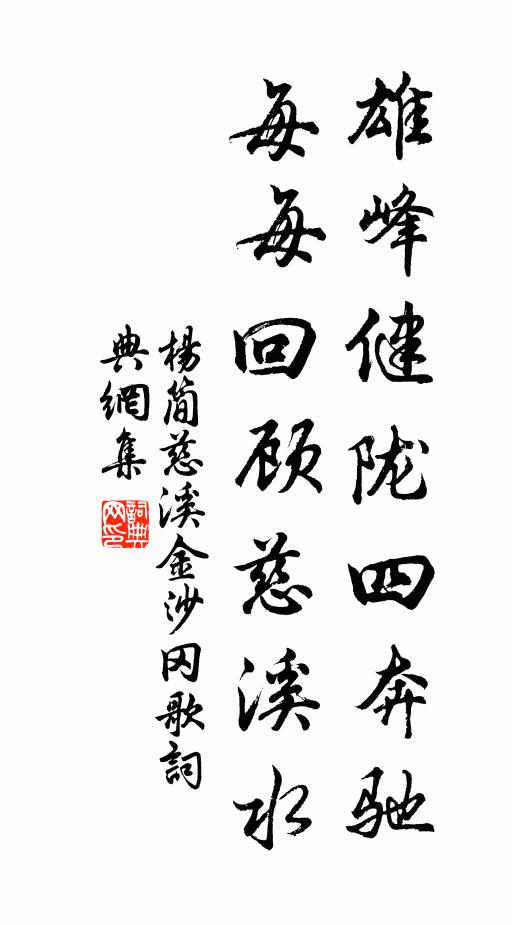 雄峰健陇四奔驰
每每回顾慈溪水
楊简慈溪金沙冈歌詞
典網集
詞典网印